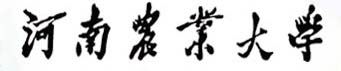 河南農業大學